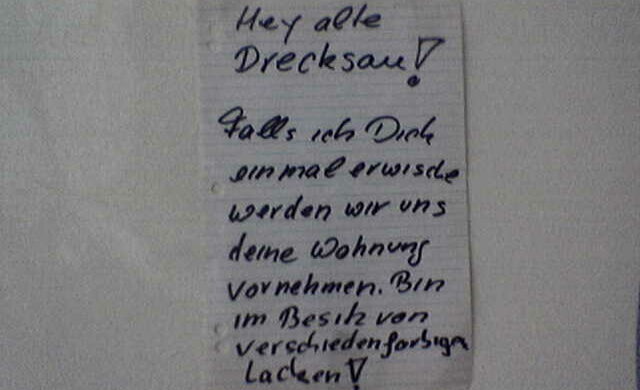 Hey alte
Drecksau!
Falls ich Dich
einmal erwische
werden wir uns
deine Wohnung
vornehmen. Bin
im Besitz von
verschiedenfarbigen
Lacken!